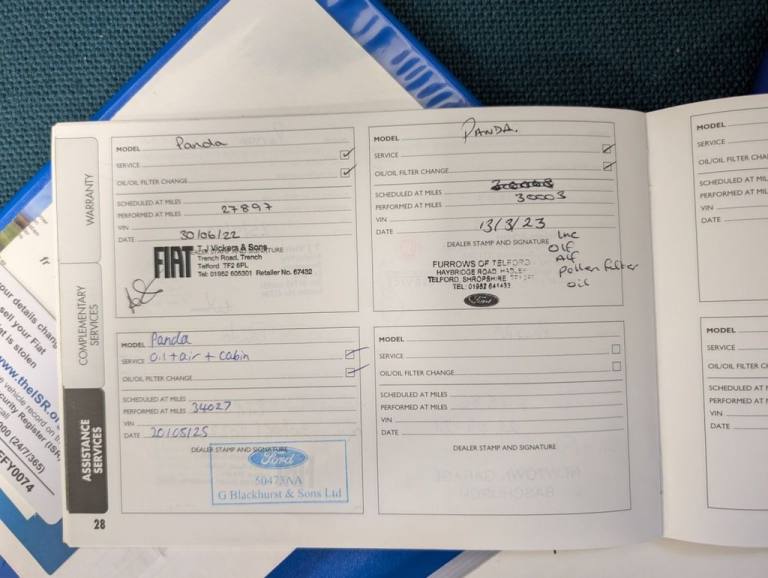 WARRANTY
COMPLEMENTARY
SERVICES
ASSISTANCE
SERVICES
28
MODEL Panda
SERVICE
OIL/OIL FILTER CHANGE
SCHEDULED AT MILES
PERFORMED AT MILES 27897
VIN
DATE 30/06/22
DEALER STAMP AND SIGNATURE
FIAT
T J Vickers & Sons
Trench Road, Trench
Telford TF2 6PL
Tel: 01952 605301 Retailer No. 67492
MODEL PANDA.
SERVICE
OIL/OIL FILTER CHANGE
SCHEDULED AT MILES
PERFORMED AT MILES 30003
VIN
DATE 13/3/23
DEALER STAMP AND SIGNATURE
Inc
O/F
A/F
pollen filter
oil
FURROWS OF TELFORD
HAYBRIDGE ROAD
TELFORD SHROPSHIRE
TEL: 01952 641433
Ford
MODEL Panda
SERVICE Oil + air + cabin
OIL/OIL FILTER CHANGE
SCHEDULED AT MILES
PERFORMED AT MILES 34027
VIN
DATE 20/05/25
DEALER STAMP AND SIGNATURE
Ford
G Blackhurst & Sons Ltd
MODEL
SERVICE
OIL/OIL FILTER CHANGE
SCHEDULED AT MILES
PERFORMED AT MILES
VIN
DATE
DEALER STAMP AND SIGNATURE
MODEL
SERVICE
OIL/OIL FILTER CHA
SCHEDULED AT M
PERFORMED AT M
VIN
DATE
MODEL
SERVICE
OIL/OIL FILTER CHA
SCHEDULED AT M
PERFORMED AT M
VIN
DATE
our details chang
sell your Fiat
at is stolen
www.theISR.or
e vehicle record on th
curity Register (ISR,
call
000 (24/7/365)
EFY0074